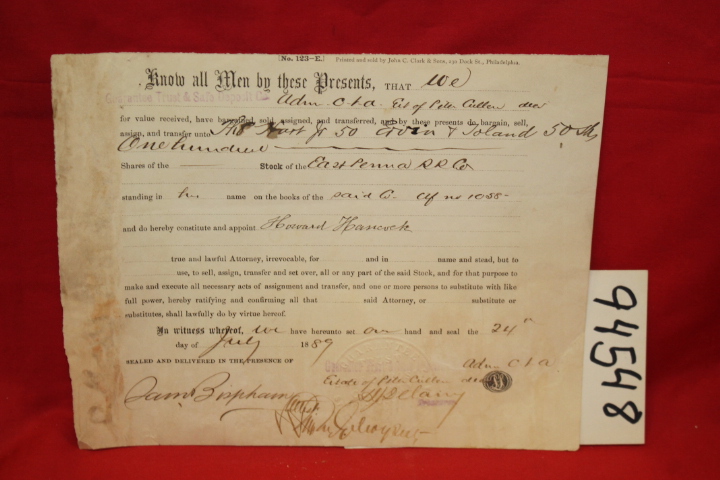 [No. 123-E.] Printed and sold by John C. Clark & Sons, 230 Dock St., Philadelphia.
Know all Men by these Presents, THAT We
Guarantee Trust & Safe Deposit Co. Adm. c.t.a. Est of Peter Cullen decd
for value received, have bargained, sold, assigned, and transferred, and by these presents do bargain, sell,
assign, and transfer unto Thos Hart Jr 50 & Toland 50 Shs
One hundred
Shares of the Stock of the East Penna R R Co
standing in his name on the books of the said Co. Ctf no 1055
and do hereby constitute and appoint Howard Hancock
true and lawful Attorney, irrevocable, for and in name and stead, but to
use, to sell, assign, transfer and set over, all or any part of the said Stock, and for that purpose to
make and execute all necessary acts of assignment and transfer, and one or more persons to substitute with like
full power, hereby ratifying and confirming all that said Attorney, or substitute or
substitutes, shall lawfully do by virtue hereof.
In witness whereof, we have hereunto set our hand and seal the 24"
day of July 1889
SEALED AND DELIVERED IN THE PRESENCE OF Adm c.t.a.
Estate of Peter Cullen decd
Sam Bispham
Attest
94548